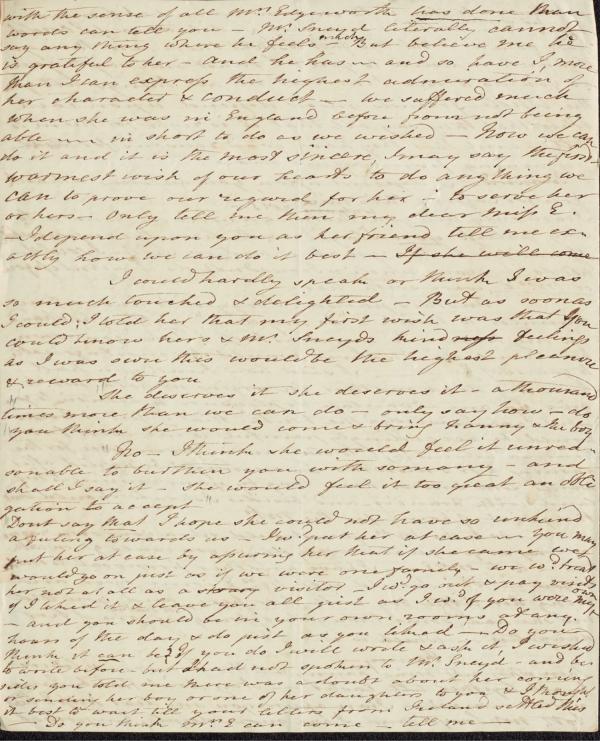 with the sense of all Mrs. Edgeworth has done than
words can tell you - Mr. Sneyd literally cannot
say any thing where he feels much But believe me he
is grateful to her - and he has - and so have I, more
than I can express the highest admiration of
her character & conduct - we suffered much
when she was in England before from not being
able - in short to do as we wished - Now we can
do it and it is the most sincere, I may say the first
warmest wish of our hearts to do anything we
can to prove our regard for her - to serve her
or hers - Only tell me then my dear Miss E.
- I depend upon you as her friend tell me ex-
actly how we can do it best - If she will come
I could hardly speak or think I was
so much touched & delighted - But as soon as
I could; I told her that my first wish was that you
could know hers & Mr. Sneyds kind feelings
as I was sure this would be the highest pleasure
& reward to you
"She deserves it she deserves it - a thousand
times more than we can do - only say how - do
you think she would come & bring Fanny & the boy
"No - I think she would feel it unrea-
sonable to burthen you with so many - and
shall I say it - she would feel it too great an obli
gation to accept"
Dont say that I hope she could not have so unkind
a feeling towards us - I wd. put her at ease - You may
put her at ease by assuring her that if she came we
would go on just as if we were one family - we wd. treat
her not at all as a visitor - I wd. go out & pay visits
if I liked it & leave you all just as I wd. if you were my own
- and you should be in your own rooms at any
hours of the day & do just as you liked - Do you
think it can be? If you do I will write & ask it, I wished
to write before - but I had not spoken to Mr. Sneyd - and be
sides you told me there was a doubt about her coming
or sending her boy or one of her daughters to you & I thought
it best to wait till your letters from Ireland settled this
- Do you think Mrs. E can come - tell me -